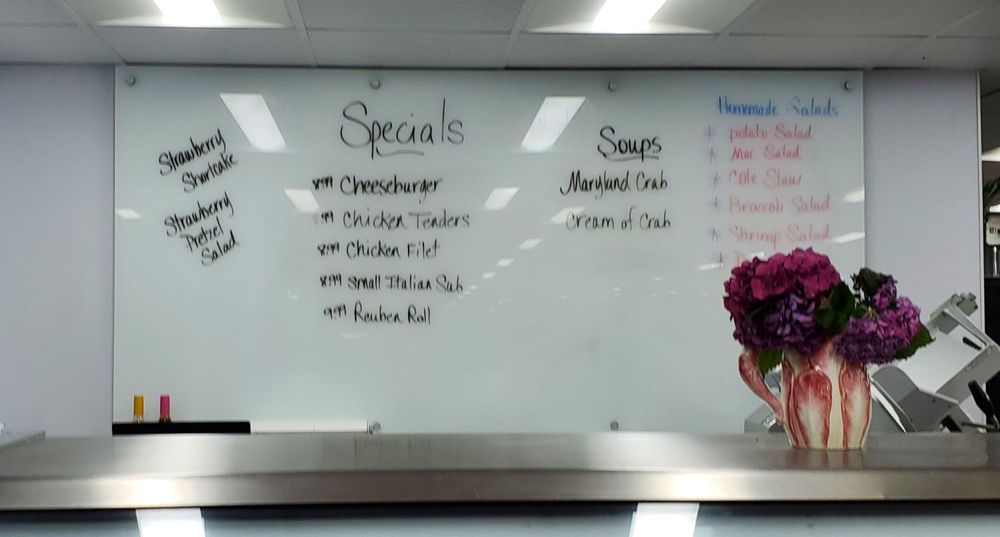 Strawberry
Shortcake
Strawberry
Pretzel
Salad
Specials
8.99 Cheeseburger
Chicken Tenders
8.99 Chicken Filet
8.99 Small Italian Sub
9.99 Reuben Roll
Soups
Maryland Crab
Cream of Crab
Homemade Salads
* potato Salad
* Mac Salad
* Cole Slaw
* Broccoli Salad
* Shrimp Salad
*